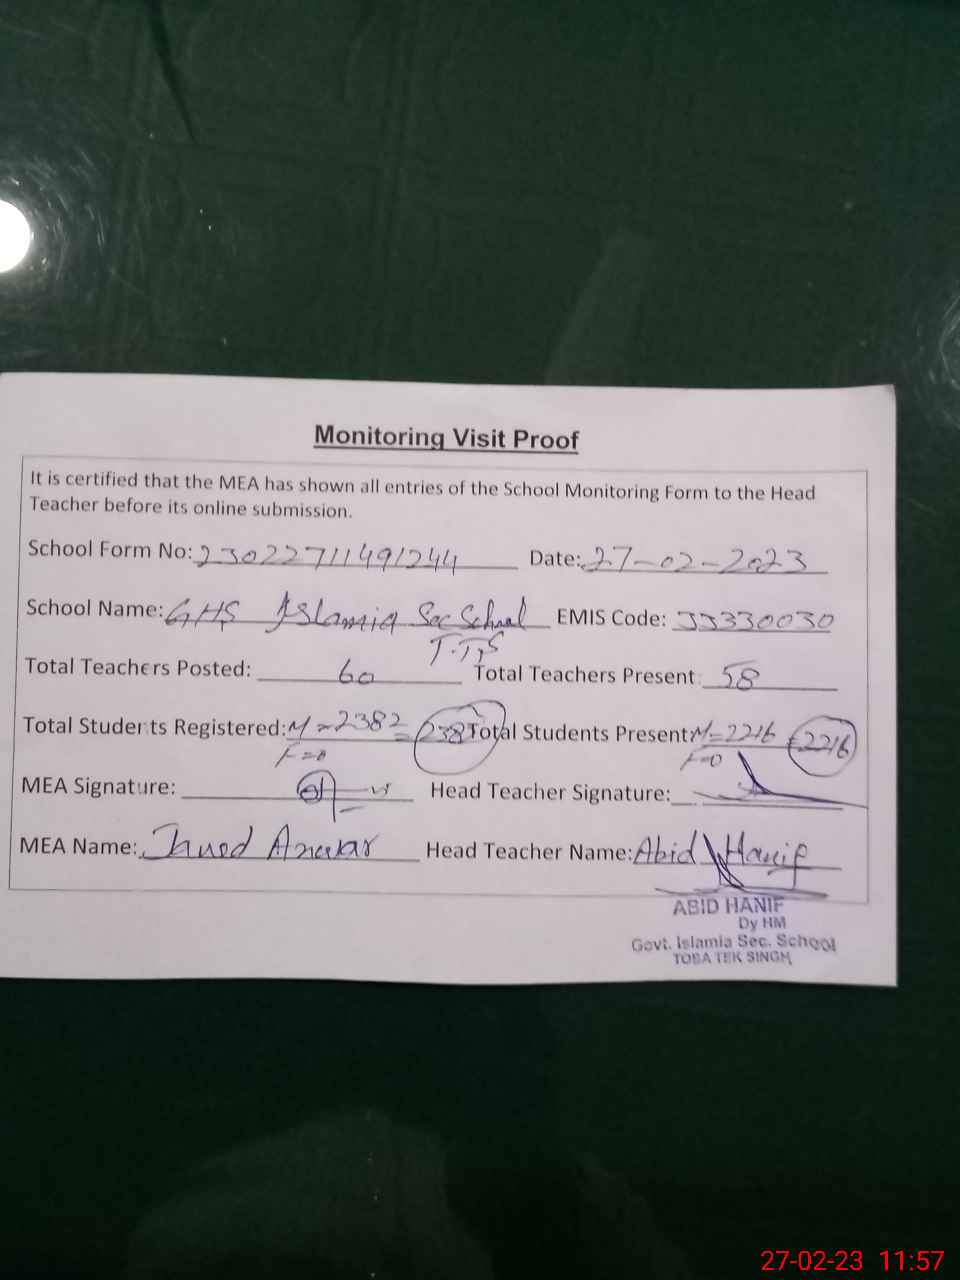 Monitoring Visit Proof
It is certified that the MEA has shown all entries of the School Monitoring Form to the Head
Teacher before its online submission.
School Form No: 23022711491244 Date: 27-02-2023
School Name: GHS Islamia Sec School EMIS Code: 33330030
T.T.S
Total Teachers Posted: 60 Total Teachers Present: 58
Total Students Registered: M=2382 = 2382 Total Students Present: M=2216 = 2216
F=0 F=0
MEA Signature: Head Teacher Signature:
MEA Name: Javed Anwar Head Teacher Name: Abid Hanif
ABID HANIF
Dy HM
Govt. Islamia Sec. School
TOBA TEK SINGH
27-02-23 11:57